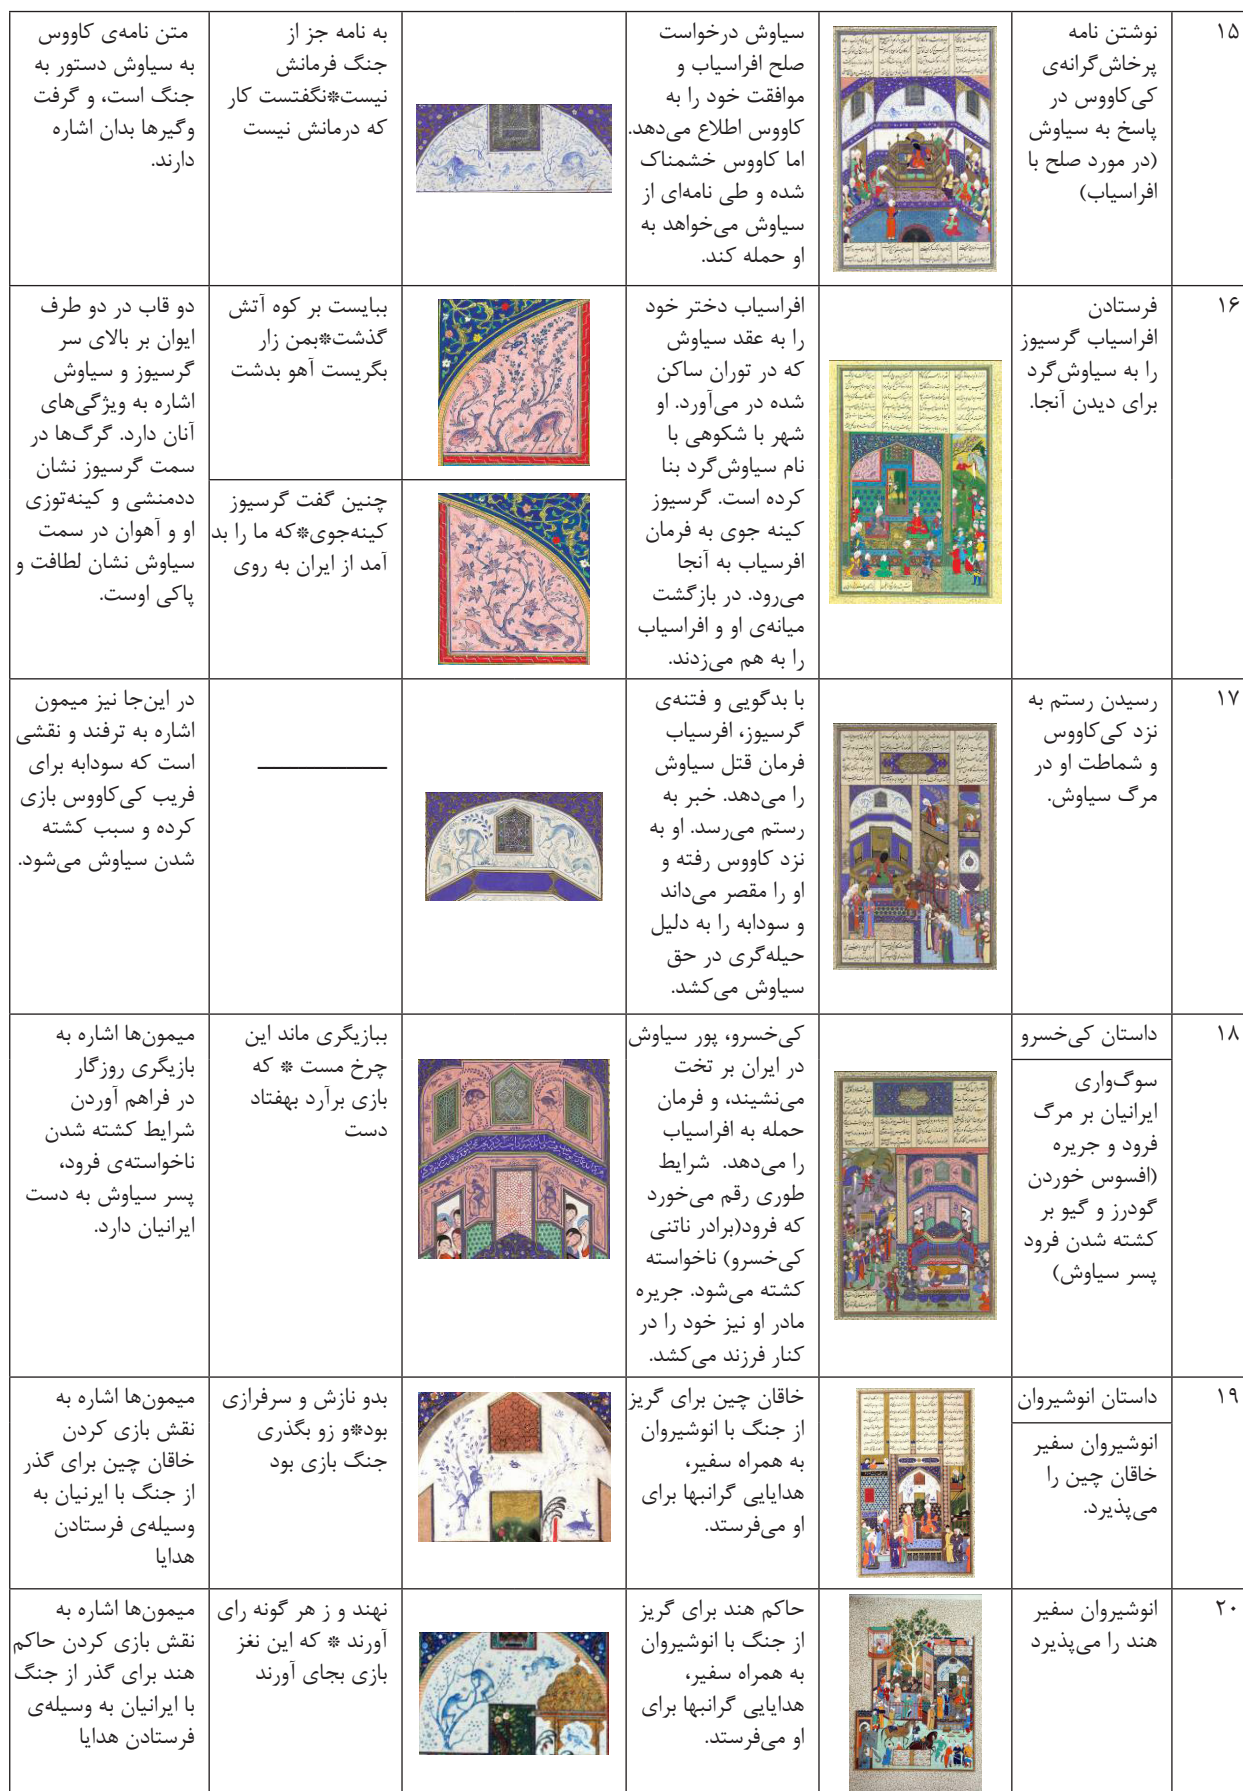 ۱۵
نوشتن نامه
پرخاش‌گرانه‌ی
کی‌کاووس در
پاسخ به سیاوش
(در مورد صلح با
افراسیاب)
سیاوش درخواست
صلح افراسیاب و
موافقت خود را به
کاووس اطلاع می‌دهد.
اما کاووس خشمناک
شده و طی نامه‌ای از
سیاوش می‌خواهد به
او حمله کند.
به نامه جز از
جنگ فرمانش
نیست*نگفتست کار
که درمانش نیست
متن نامه‌ی کاووس
به سیاوش دستور به
جنگ است، و گرفت
وگیرها بدان اشاره
دارند.
۱۶
فرستادن
افراسیاب گرسیوز
را به سیاوش‌گرد
برای دیدن آنجا.
افراسیاب دختر خود
را به عقد سیاوش
که در توران ساکن
شده در می‌آورد. او
شهر با شکوهی با
نام سیاوش‌گرد بنا
کرده است. گرسیوز
کینه جوی به فرمان
افرسیاب به آنجا
می‌رود. در بازگشت
میانه‌ی او و افراسیاب
را به هم می‌زدند.
ببایست بر کوه آتش
گذشت*بمن زار
بگریست آهو بدشت
چنین گفت گرسیوز
کینه‌جوی*که ما را بد
آمد از ایران به روی
دو قاب در دو طرف
ایوان بر بالای سر
گرسیوز و سیاوش
اشاره به ویژگی‌های
آنان دارد. گرگ‌ها در
سمت گرسیوز نشان
ددمنشی و کینه‌توزی
او و آهوان در سمت
سیاوش نشان لطافت و
پاکی اوست.
۱۷
رسیدن رستم به
نزد کی‌کاووس
و شماطت او در
مرگ سیاوش.
با بدگویی و فتنه‌ی
گرسیوز، افرسیاب
فرمان قتل سیاوش
را می‌دهد. خبر به
رستم می‌رسد. او به
نزد کاووس رفته و
او را مقصر می‌داند
و سودابه را به دلیل
حیله‌گری در حق
سیاوش می‌کشد.
در این‌جا نیز میمون
اشاره به ترفند و نقشی
است که سودابه برای
فریب کی‌کاووس بازی
کرده و سبب کشته
شدن سیاوش می‌شود.
۱۸
داستان کی‌خسرو
سوگ‌واری
ایرانیان بر مرگ
فرود و جریره
(افسوس خوردن
گودرز و گیو بر
کشته شدن فرود
پسر سیاوش)
کی‌خسرو، پور سیاوش
در ایران بر تخت
می‌نشیند، و فرمان
حمله به افراسیاب
را می‌دهد. شرایط
طوری رقم می‌خورد
که فرود(برادر ناتنی
کی‌خسرو) ناخواسته
کشته می‌شود. جریره
مادر او نیز خود را در
کنار فرزند می‌کشد.
ببازیگری ماند این
چرخ مست * که
بازی برآرد بهفتاد
دست
میمون‌ها اشاره به
بازیگری روزگار
در فراهم آوردن
شرایط کشته شدن
ناخواسته‌ی فرود،
پسر سیاوش به دست
ایرانیان دارد.
۱۹
داستان انوشیروان
انوشیروان سفیر
خاقان چین را
می‌پذیرد.
خاقان چین برای گریز
از جنگ با انوشیروان
به همراه سفیر،
هدایایی گرانبها برای
او می‌فرستد.
بدو نازش و سرفرازی
بود*و زو بگذری
جنگ بازی بود
میمون‌ها اشاره به
نقش بازی کردن
خاقان چین برای گذر
از جنگ با ایرنیان به
وسیله‌ی فرستادن
هدایا
۲۰
انوشیروان سفیر
هند را می‌پذیرد
حاکم هند برای گریز
از جنگ با انوشیروان
به همراه سفیر،
هدایایی گرانبها برای
او می‌فرستد.
نهند و ز هر گونه رای
آورند * که این نغز
بازی بجای آورند
میمون‌ها اشاره به
نقش بازی کردن حاکم
هند برای گذر از جنگ
با ایرانیان به وسیله‌ی
فرستادن هدایا